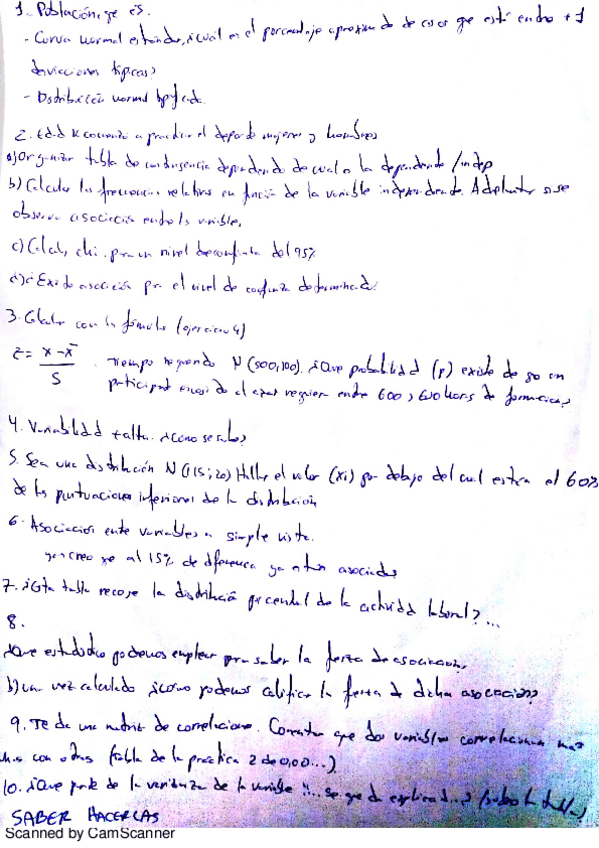 1. Población, qe es.
- Curva normal estándar, ¿cuál es el porcentaje aproximado de casos que está entre + 1
desviaciones típicas?
- Distribución normal tipificada.
2. Edad comienzo a practicar el deporte mujeres y hombres
a) Organizar tabla de contingencia dependiendo de cual o la dependente / indep
b) Calcular las frecuencias relativas en función de la variable independiente. Adelantar si se
observa asociación entre ls variables,
c) Calcula, chi. para un nivel de confianza del 95%
d) ¿Existe asociación por el nivel de confianza determinado.
3. Calcular con la fórmula (ejercicio 4)
z = x - x̄ / S . tiempo N (500,100). ¿Que probabilidad (p) existe de qe un
participante al azar requiera entre 600 y 650 horas de formación?
4. Variabilidad + alta. ¿Cómo se sabe?
5. Sea una distribución N (115; 20) Hallar el valor (xi) por debajo del cual estira el 60%
de las puntuaciones inferiores de la distribución
6. Asociación ente variables a simple vista.
yo creo qe al 15% de diferencia ya estan asociadas
7. ¿Esta tabla recoge la distribución porcentual de la actividad laboral? ...
8.
¿Que estadístico podemos emplear para saber la fuerza de asociación?
b) una vez calculado ¿como podemos calificar la fuerza de dicha asociación?
9. Te da una matriz de correlaciones. Comentar que dos variables correlacionan mas
con otras (tabla de la practica 2 de 0,00...)
10. ¿Que parte de la varianza de la variable "... se queda explicada...? (sabes la tabla)
SABER HACERLAS
Scanned by CamScanner